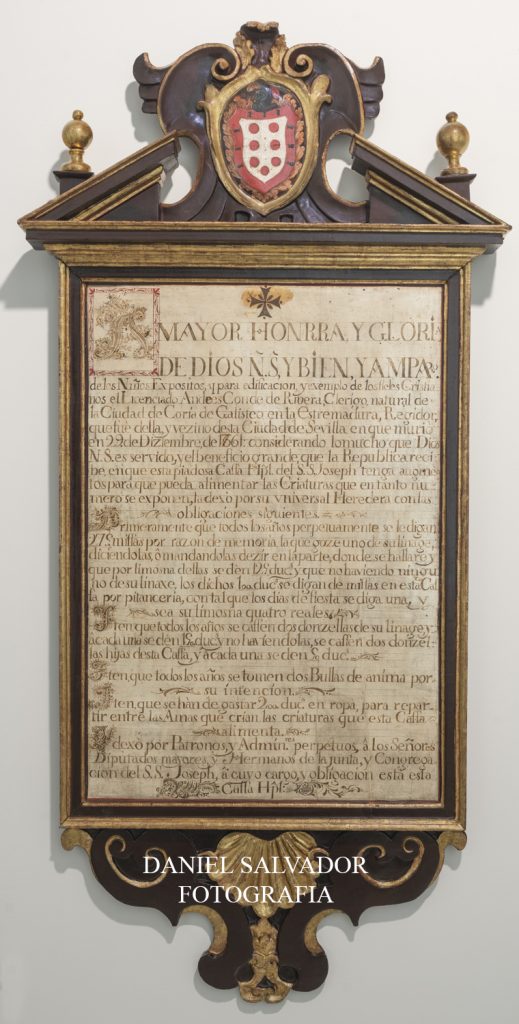 A
MAYOR HONRRA, Y GLORIA
DE DIOS Ñ. S. Y BIEN, Y AMPAo.
de los Niños Expositos, y para edificacion, y exemplo de los fieles Cristia
nos el Licenciado Andres Conde de Ribera Clerigo, natural de
la Ciudad de Coria de Galisteo en la Estremadura, Regidor,
que fue della, y vezino desta Ciudad de Sevilla en que murio
en 22 de Diziembre, de considerando lo mucho que Dios
N. S. es servido, y el beneficio grande, que la Republica reci
be, en que esta piadosa Cassa Hpl. del S. S. Joseph tenga aumen
tos para que pueda alimentar las Criaturas que en tanto nu
mero se exponen, la dexò por su vniversal Heredera con las
obligaciones siguientes.
Primeramente que todos los años perpetuamente se le digan
missas por razon de memoria la que goze uno de su linage,
diciendolas, ò mandandolas dezir en la parte, donde se hallare, y
que por limosna dellas se den duc.s y que no haviendo ningu
no de su linaxe, los dichos duc.s se digan de missas en esta Cas
sa por pitanceria, con tal que los dias de fiesta se diga una, y
sea su limosna quatro reales.
Iten que todos los años se cassen dos donzellas de su linage, y
a cada una se den duc. y no haviendolas, se cassen dos donze
llas hijas desta Cassa, y a cada una se den duc.
Iten que todos los años se tomen dos Bullas de anima por
su intencion.
Iten, que se han de gastar duc. en ropa, para repar
tir entre las Amas que crian las criaturas que esta Cassa
alimenta.
Y dexò por Patronos, y Admin.res perpetuos, à los Señores
Diputados mayores, y Hermanos de la junta, y Congrega
cion del S. S. Joseph, à cuyo cargo, y obligacion està esta
Cassa Hpl.
DANIEL SALVADOR
FOTOGRAFIA